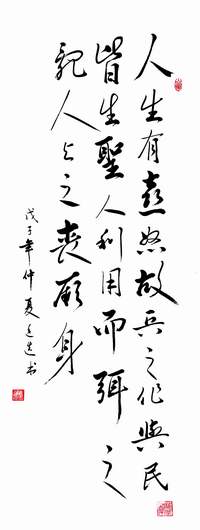 人生有喜怒故兵之作與民
皆生聖人利用而弭之
亂人與之喪厥身
戊子年仲夏 书